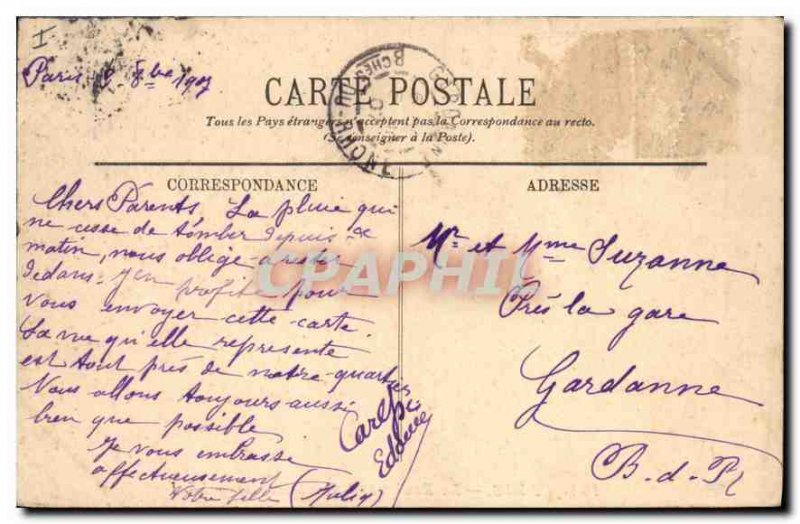 I
Paris 1907
CARTE POSTALE
Tous les Pays étrangers n'acceptent pas la Correspondance au recto.
(Se renseigner à la Poste).
BCHES DU RHONE
CORRESPONDANCE
Chers Parents. La pluie qui
ne cesse de tomber depuis ce
matin, nous oblige a rester
dedans. J'en profite pour
vous envoyer cette carte.
La vue qu'elle represente
est tout près de notre quartier
Nous allons toujours aussi
bien que possible
Je vous embrasse
affectueusement
Votre fille
Edouard
ADRESSE
Mr et Mme Suzanne
Près la gare
Gardanne
B.d.R
CPAPHIL